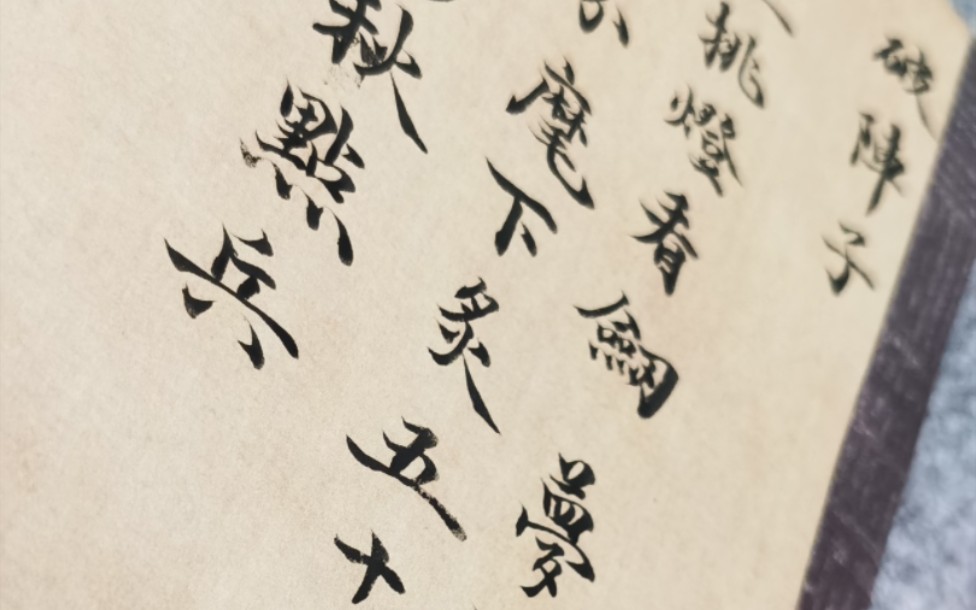 破陣子
挑燈看劍夢
麾下炙五十
秋點兵